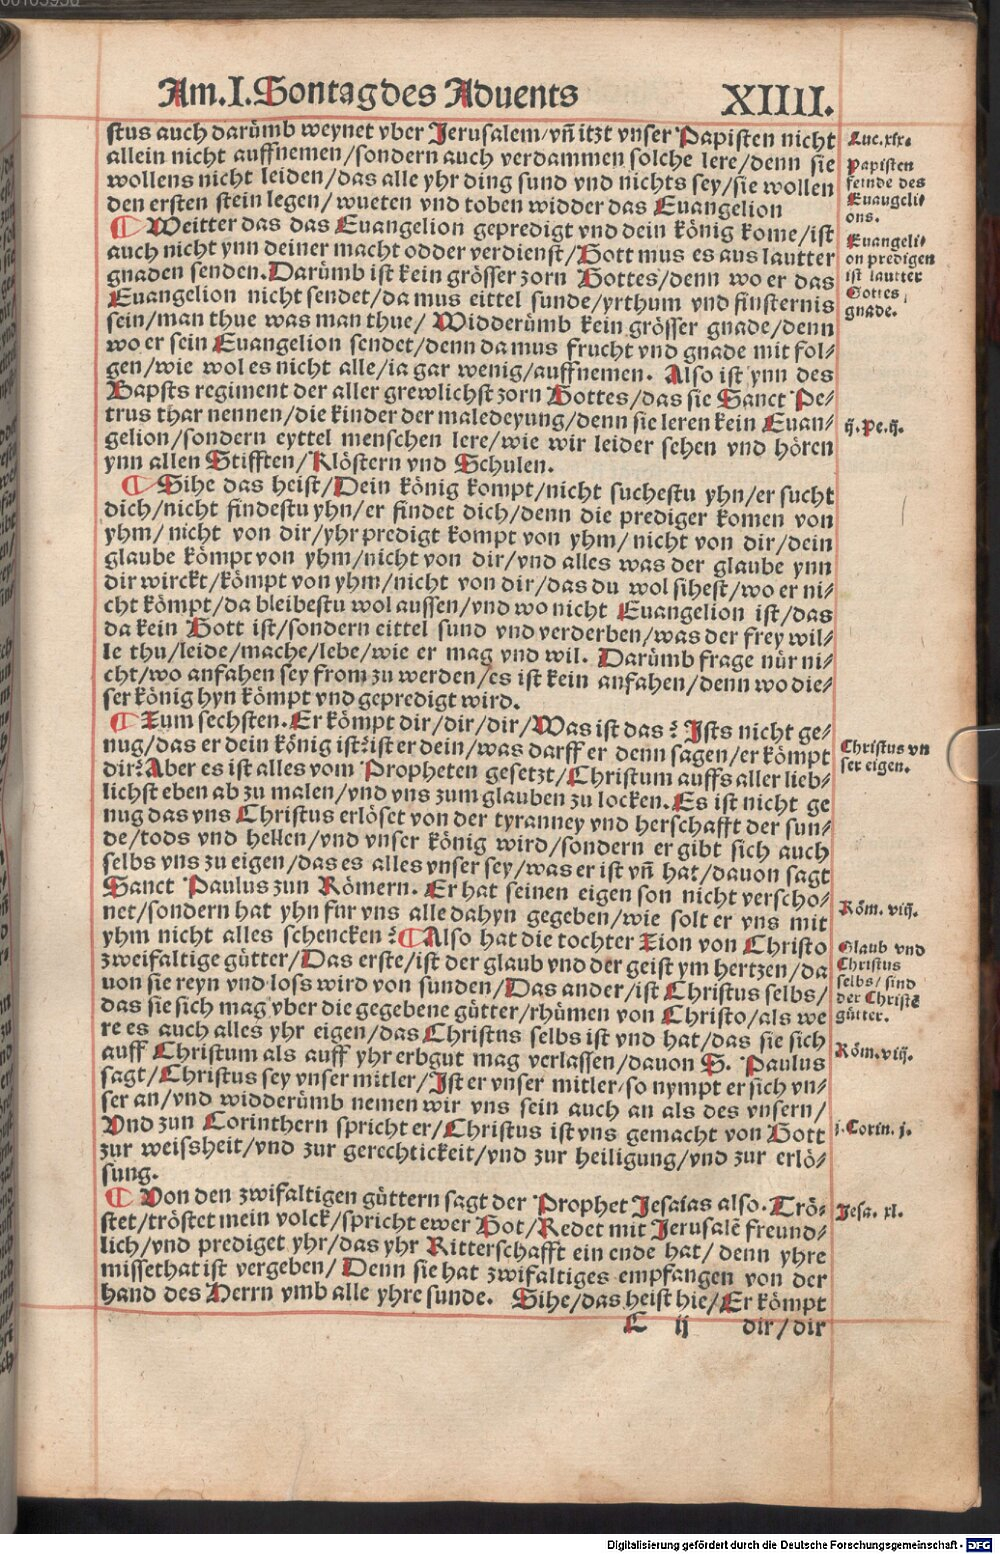 Am.I.Sontag des Aduents
XIIII.
stus auch darümb weynet vber Jerusalem/vñ itzt vnser Papisten nicht
allein nicht auffnemen/sondern auch verdammen solche lere/denn sie
wollens nicht leiden/das alle yhr ding sund vnd nichts sey/sie wollen
den ersten stein legen/wueten vnd toben widder das Euangelion
¶ Weitter das das Euangelion gepredigt vnd dein könig kome/ist
auch nicht ynn deiner macht odder verdienst/Gott mus es aus lautter
gnaden senden.Darümb ist kein grösser zorn Gottes/denn wo er das
Euangelion nicht sendet/da mus eittel sunde/yrthum vnd finsternis
sein/man thue was man thue/ Widderümb kein grösser gnade/denn
wo er sein Euangelion sendet/denn da mus frucht vnd gnade mit fol⸗
gen/wie wol es nicht alle/ia gar wenig/auffnemen. Also ist ynn des
Bapsts regiment der aller grewlichst zorn Gottes/das sie Sanct Pe⸗
trus thar nennen/die kinder der maledeyung/denn sie leren kein Euan⸗
gelion/sondern eyttel menschen lere/wie wir leider sehen vnd hören
ynn allen Stifften/Klöstern vnd Schulen.
¶ Sihe das heist/Dein könig kompt/nicht suchestu yhn/er sucht
dich/nicht findestu yhn/er findet dich/denn die prediger komen von
yhm/ nicht von dir/yhr predigt kompt von yhm/ nicht von dir/dein
glaube kömpt von yhm/nicht von dir/vnd alles was der glaube ynn
dir wirckt/kömpt von yhm/nicht von dir/das du wol sihest/wo er ni⸗
cht kömpt/da bleibestu wol aussen/vnd wo nicht Euangelion ist/das
da kein Gott ist/sondern eittel sund vnd verderben/was der frey wil⸗
le thu/leide/mache/lebe/wie er mag vnd wil. Darümb frage nür ni⸗
cht/wo anfahen sey from zu werden/es ist kein anfahen/denn wo die⸗
ser könig hyn kömpt vnd gepredigt wird.
¶ Zum sechsten.Er kömpt dir/dir/dir/Was ist das? Ists nicht ge⸗
nug/das er dein könig ist?ist er dein/was darff er denn sagen/er kömpt
dir?Aber es ist alles vom Propheten gesetzt/Christum auffs aller lieb⸗
lichst eben ab zu malen/vnd vns zum glauben zu locken.Es ist nicht ge
nug das vns Christus erlöset von der tyranney vnd herschafft der sun⸗
de/tods vnd hellen/vnd vnser könig wird/sondern er gibt sich auch
selbs vns zu eigen/das es alles vnser sey/was er ist vñ hat/dauon sagt
Sanct Paulus zun Römern. Er hat seinen eigen son nicht verscho⸗
net/sondern hat yhn fur vns alle dahyn gegeben/wie solt er vns mit
yhm nicht alles schencken? ¶ Also hat die tochter Zion von Christo
zweifaltige gütter/Das erste/ist der glaub vnd der geist ym hertzen/da
uon sie reyn vnd loss wird von sunden/Das ander/ist Christus selbs/
das sie sich mag vber die gegebene gütter/rhümen von Christo/als we
re es auch alles yhr eigen/das Christns selbs ist vnd hat/das sie sich
auff Christum als auff yhr erbgut mag verlassen/dauon S. Paulus
sagt/Christus sey vnser mitler/Ist er vnser mitler/so nympt er sich vn⸗
ser an/vnd widderümb nemen wir vns sein auch an als des vnsern/
Vnd zun Corinthern spricht er/Christus ist vns gemacht von Gott
zur weissheit/vnd zur gerechtickeit/vnd zur heiligung/vnd zur erlö⸗
sung.
¶ Von den zwifaltigen güttern sagt der Prophet Jesaias also. Trö⸗
stet/tröstet mein volck/spricht ewer Got/Redet mit Jerusalē freund⸗
lich/vnd prediget yhr/das yhr Ritterschafft ein ende hat/ denn yhre
missethat ist vergeben/ Denn sie hat zwifaltiges empfangen von der
hand des Herrn vmb alle yhre sunde. Sihe/das heist hie/Er kömpt
C ij dir/dir
Luc.xix.
Papisten
feinde des
Euaugeli⸗
ons.
Euangeli⸗
on predigen
ist lautter
Gottes
gnade.
ij.Pe.ij.
Christus vn
ser eigen.
Röm. viij.
Glaub vnd
Christus
selbs/ sind
der Christē
gütter.
Röm.viij.
j.Corin. j.
Jesa. xl.
Digitalisierung gefördert durch die Deutsche Forschungsgemeinschaft - DFG